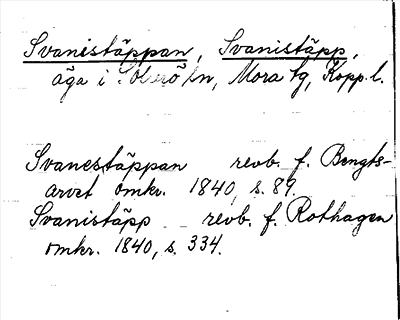 Svanistäppan, Svanistäpp,
äga i Solerö sn, Mora tg, Kopp. l.
Svanestäppan revb. f. Bengts-
arvet omkr. 1840, s. 89.
Svanistäpp revb. f. Rothagen
omkr. 1840, s. 334.